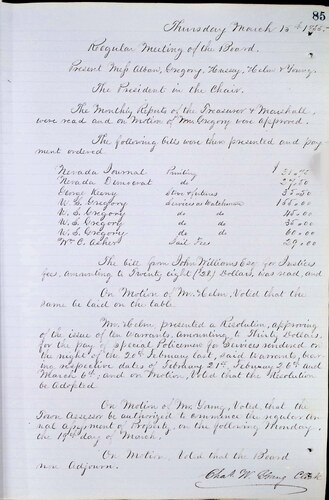 85
Thursday March 15th
Regular Meeting of the Board.
Present Mess Alban, Gregory, Hussey, Helm & Young.
The President in the Chair.
The Monthly Reports of the Treasurer & Marshall,
were read and on Motion of Mr. Gregory were approved.
The following bills were then presented and pay
ment ordered.
Nevada Journal Printing $
Nevada Democrat do 27,50
George Keeny Stove fixtures
W. S. Gregory Services as Watchman 155,00
W. S. Gregory do do 45,00
W. S. Gregory do do 35,00
W. S. Gregory do do 60,00
Wm C. Asher Jail Fees 29,00
The bill from John Williams Esq. for Justices
fees, amounting to Twenty eight (28) Dollars, was read, and
On Motion of Mr. Helm, Voted that the
same be laid on the table.
Mr. Helm presented a Resolution, approving
of the issue of ten warrants, amounting to Thirty Dollars,
for the pay of special Policemen for Services rendered on
the night of the 20th February last, said Warrants, bear
ing respective dates of February 21st, February 26th and
March 6th, and on Motion, Voted that the Resolution
be Adopted.
On Motion of Mr. Young, Voted that the
Town Assessor be authorized to commence the regular an
nual Assessment of Property, on the following Monday,
the 19th day of March.
On Motion, Voted that the Board
now Adjourn.
Chas. W. Young Clerk